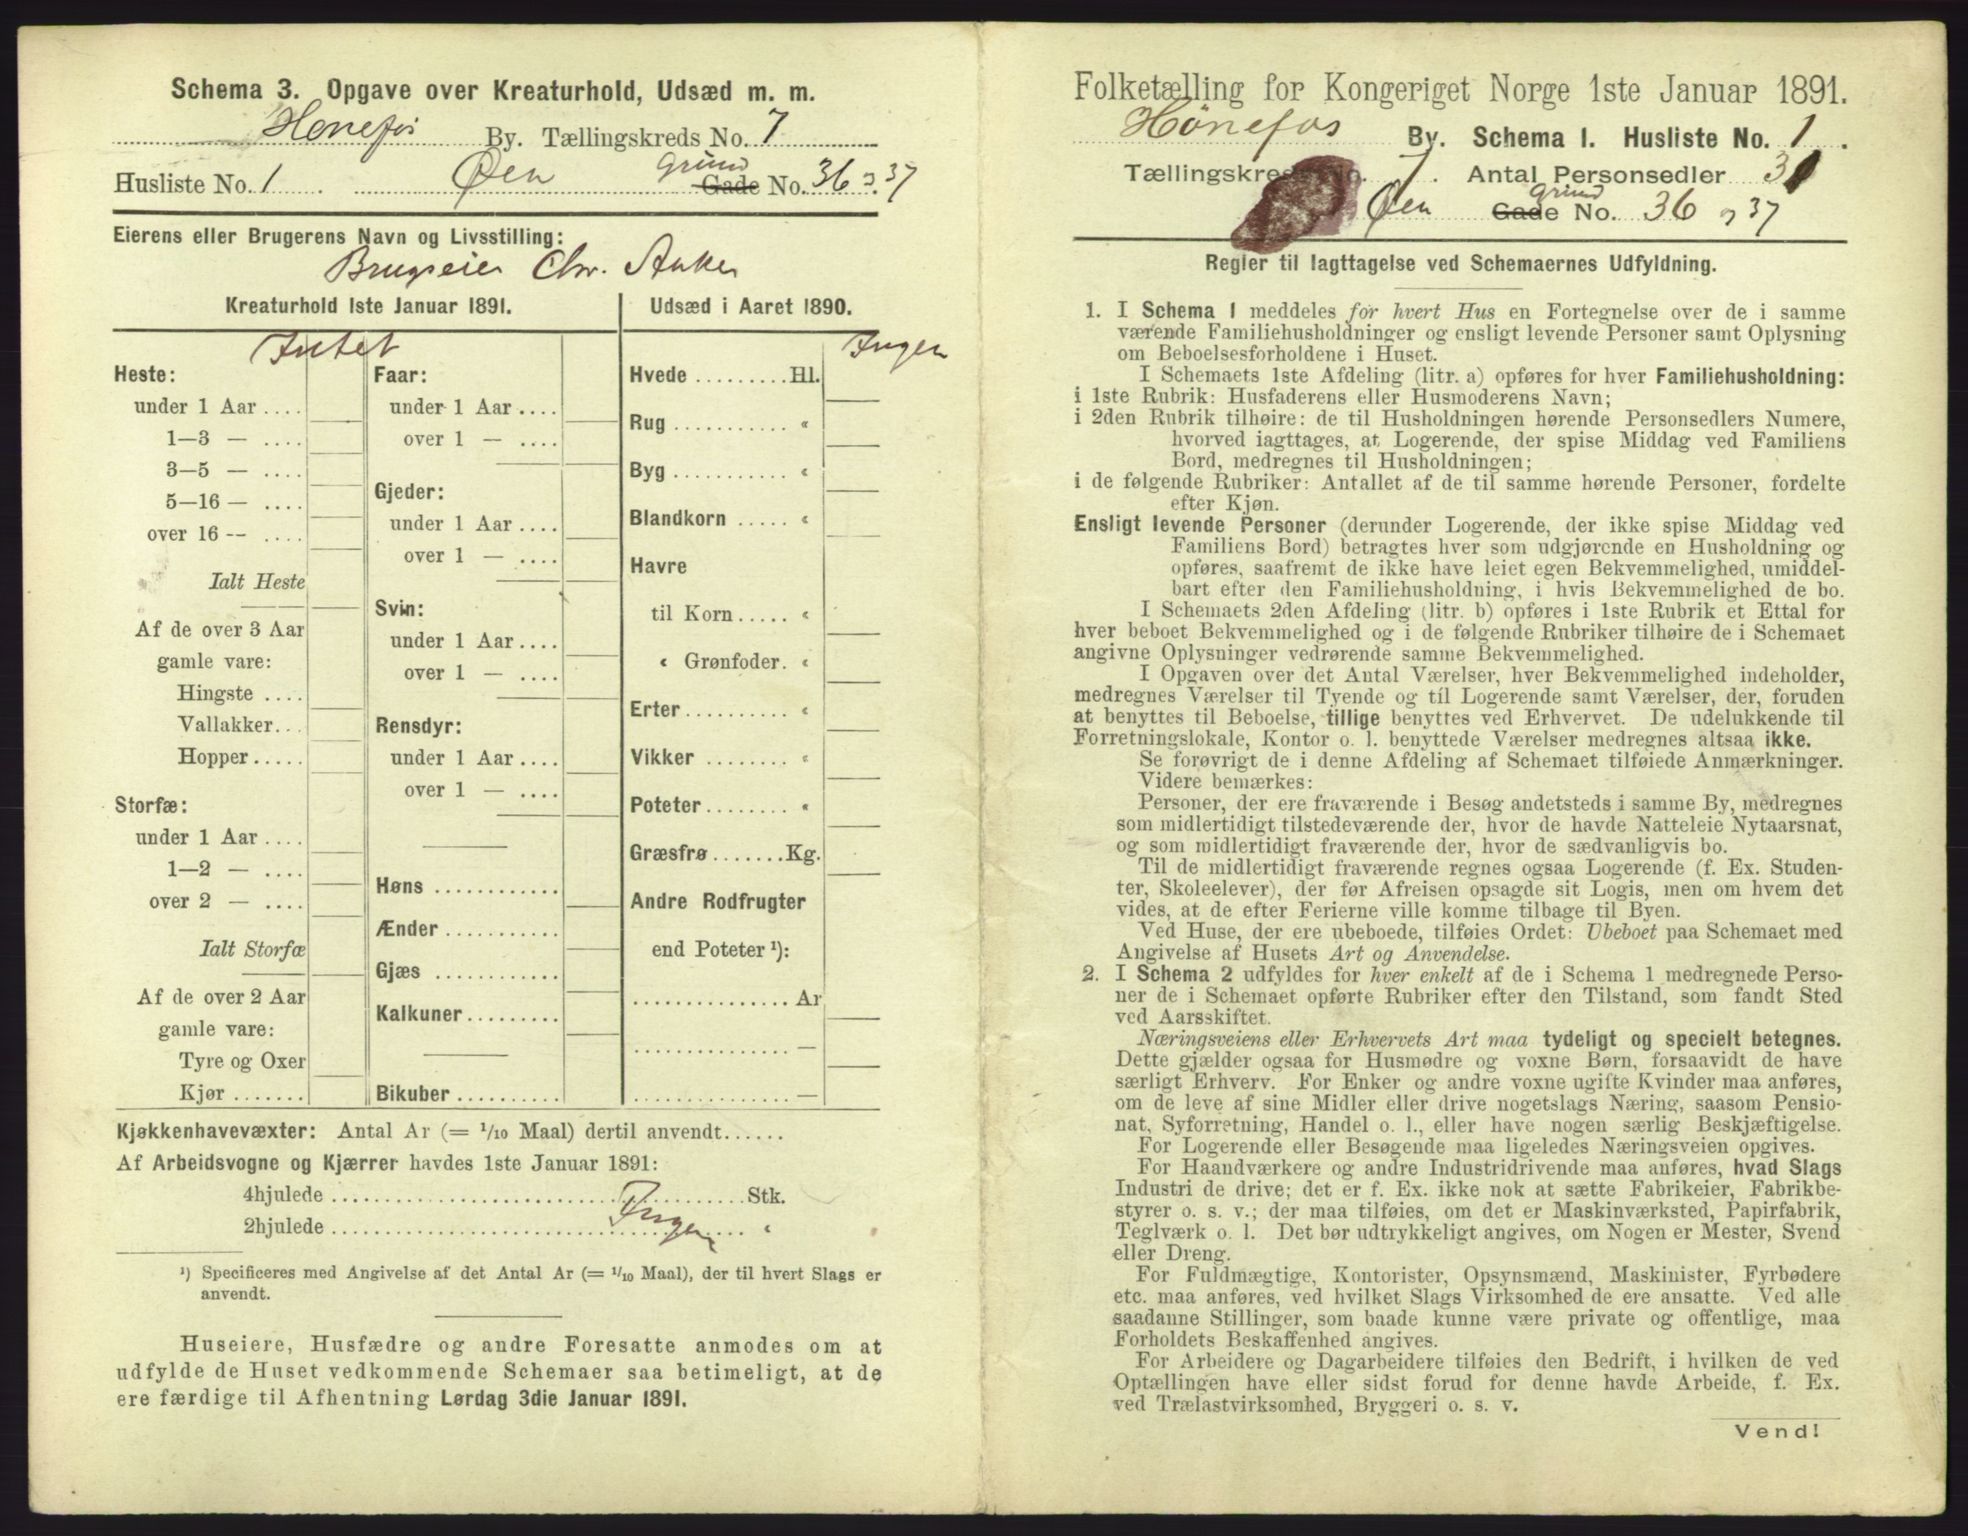 Schema 3. Opgave over Kreaturhold, Udsæd m. m.
Hønefos By. Tællingskreds No. 7
Husliste No. 1 Øen Grund Gade No. 36 37
Eierens eller Brugerens Navn og Livsstilling:
Brugseier Chr. Anker
Kreaturhold 1ste Januar 1891.
Intet
Heste:
under 1 Aar ....
1—3 — ....
3—5 — ....
5—16 — ....
over 16 — ....
Ialt Heste
Af de over 3 Aar
gamle vare:
Hingste ....
Vallakker...
Hopper.....
Storfæ:
under 1 Aar ....
1—2 — ....
over 2 — ....
Ialt Storfæ
Af de over 2 Aar
gamle vare:
Tyre og Oxer
Kjør .......
Faar:
under 1 Aar ....
over 1 — ....
Gjeder:
under 1 Aar ....
over 1 — ....
Svin:
under 1 Aar ....
over 1 — ....
Rensdyr:
under 1 Aar ....
over 1 — ....
Høns ............
Ænder ...........
Gjæs ............
Kalkuner.........
Bikuber ..........
Udsæd i Aaret 1890.
Ingen
Hvede .........Hl.
Rug ........... «
Byg ........... «
Blandkorn ..... «
Havre
til Korn..... «
« Grønfoder. «
Erter.......... «
Vikker ........ «
Poteter........ «
Græsfrø.......Kg.
Andre Rodfrugter
end Poteter ¹):
............... Ar
............... —
............... —
Kjøkkenhavevæxter: Antal Ar (= 1/10 Maal) dertil anvendt......
Af Arbeidsvogne og Kjærrer havdes 1ste Januar 1891:
4hjulede ........................................ Stk.
2hjulede ........................................ «
Ingen
¹) Specificeres med Angivelse af det Antal Ar (= 1/10 Maal), der til hvert Slags er
anvendt.
Huseiere, Husfædre og andre Foresatte anmodes om at
udfylde de Huset vedkommende Schemaer saa betimeligt, at de
ere færdige til Afhentning Lørdag 3die Januar 1891.
Folketælling for Kongeriget Norge 1ste Januar 1891.
Hønefos By. Schema I. Husliste No. 1.
Tællingskreds No. 7. Antal Personsedler 31
Øen Grund Gade No. 36 37
Regler til Iagttagelse ved Schemaernes Udfyldning.
1. I Schema 1 meddeles for hvert Hus en Fortegnelse over de i samme
værende Familiehusholdninger og ensligt levende Personer samt Oplysning
om Beboelsesforholdene i Huset.
I Schemaets 1ste Afdeling (litr. a) opføres for hver Familiehusholdning:
i 1ste Rubrik: Husfaderens eller Husmoderens Navn;
i 2den Rubrik tilhøire: de til Husholdningen hørende Personsedlers Numere,
hvorved iagttages, at Logerende, der spise Middag ved Familiens
Bord, medregnes til Husholdningen;
i de følgende Rubriker: Antallet af de til samme hørende Personer, fordelte
efter Kjøn.
Ensligt levende Personer (derunder Logerende, der ikke spise Middag ved
Familiens Bord) betragtes hver som udgjørende en Husholdning og
opføres, saafremt de ikke have leiet egen Bekvemmelighed, umiddel-
bart efter den Familiehusholdning, i hvis Bekvemmelighed de bo.
I Schemaets 2den Afdeling (litr. b) opføres i 1ste Rubrik et Ettal for
hver beboet Bekvemmelighed og i de følgende Rubriker tilhøire de i Schemaet
angivne Oplysninger vedrørende samme Bekvemmelighed.
I Opgaven over det Antal Værelser, hver Bekvemmelighed indeholder,
medregnes Værelser til Tyende og til Logerende samt Værelser, der, foruden
at benyttes til Beboelse, tillige benyttes ved Erhvervet. De udelukkende til
Forretningslokale, Kontor o. l. benyttede Værelser medregnes altsaa ikke.
Se forøvrigt de i denne Afdeling af Schemaet tilføiede Anmærkninger.
Videre bemærkes:
Personer, der ere fraværende i Besøg andetsteds i samme By, medregnes
som midlertidigt tilstedeværende der, hvor de havde Natteleie Nytaarsnat,
og som midlertidigt fraværende der, hvor de sædvanligvis bo.
Til de midlertidigt fraværende regnes ogsaa Logerende (f. Ex. Studen-
ter, Skoleelever), der før Afreisen opsagde sit Logis, men om hvem det
vides, at de efter Ferierne ville komme tilbage til Byen.
Ved Huse, der ere ubeboede, tilføies Ordet: Ubeboet paa Schemaet med
Angivelse af Husets Art og Anvendelse.
2. I Schema 2 udfyldes for hver enkelt af de i Schema 1 medregnede Perso-
ner de i Schemaet opførte Rubriker efter den Tilstand, som fandt Sted
ved Aarsskiftet.
Næringsveiens eller Erhvervets Art maa tydeligt og specielt betegnes.
Dette gjælder ogsaa for Husmødre og voxne Børn, forsaavidt de have
særligt Erhverv. For Enker og andre voxne ugifte Kvinder maa anføres,
om de leve af sine Midler eller drive nogetslags Næring, saasom Pensio-
nat, Syforretning, Handel o. l., eller have nogen særlig Beskjæftigelse.
For Logerende eller Besøgende maa ligeledes Næringsveien opgives.
For Haandværkere og andre Industridrivende maa anføres, hvad Slags
Industri de drive; det er f. Ex. ikke nok at sætte Fabrikeier, Fabrikbe-
styrer o. s. v.; der maa tilføies, om det er Maskinværksted, Papirfabrik,
Teglværk o. l. Det bør udtrykkeligt angives, om Nogen er Mester, Svend
eller Dreng.
For Fuldmægtige, Kontorister, Opsynsmænd, Maskinister, Fyrbødere
etc. maa anføres, ved hvilket Slags Virksomhed de ere ansatte. Ved alle
saadanne Stillinger, som baade kunne være private og offentlige, maa
Forholdets Beskaffenhed angives.
For Arbeidere og Dagarbeidere tilføies den Bedrift, i hvilken de ved
Optællingen have eller sidst forud for denne havde Arbeide, f. Ex.
ved Trælastvirksomhed, Bryggeri o. s. v.
Vend!